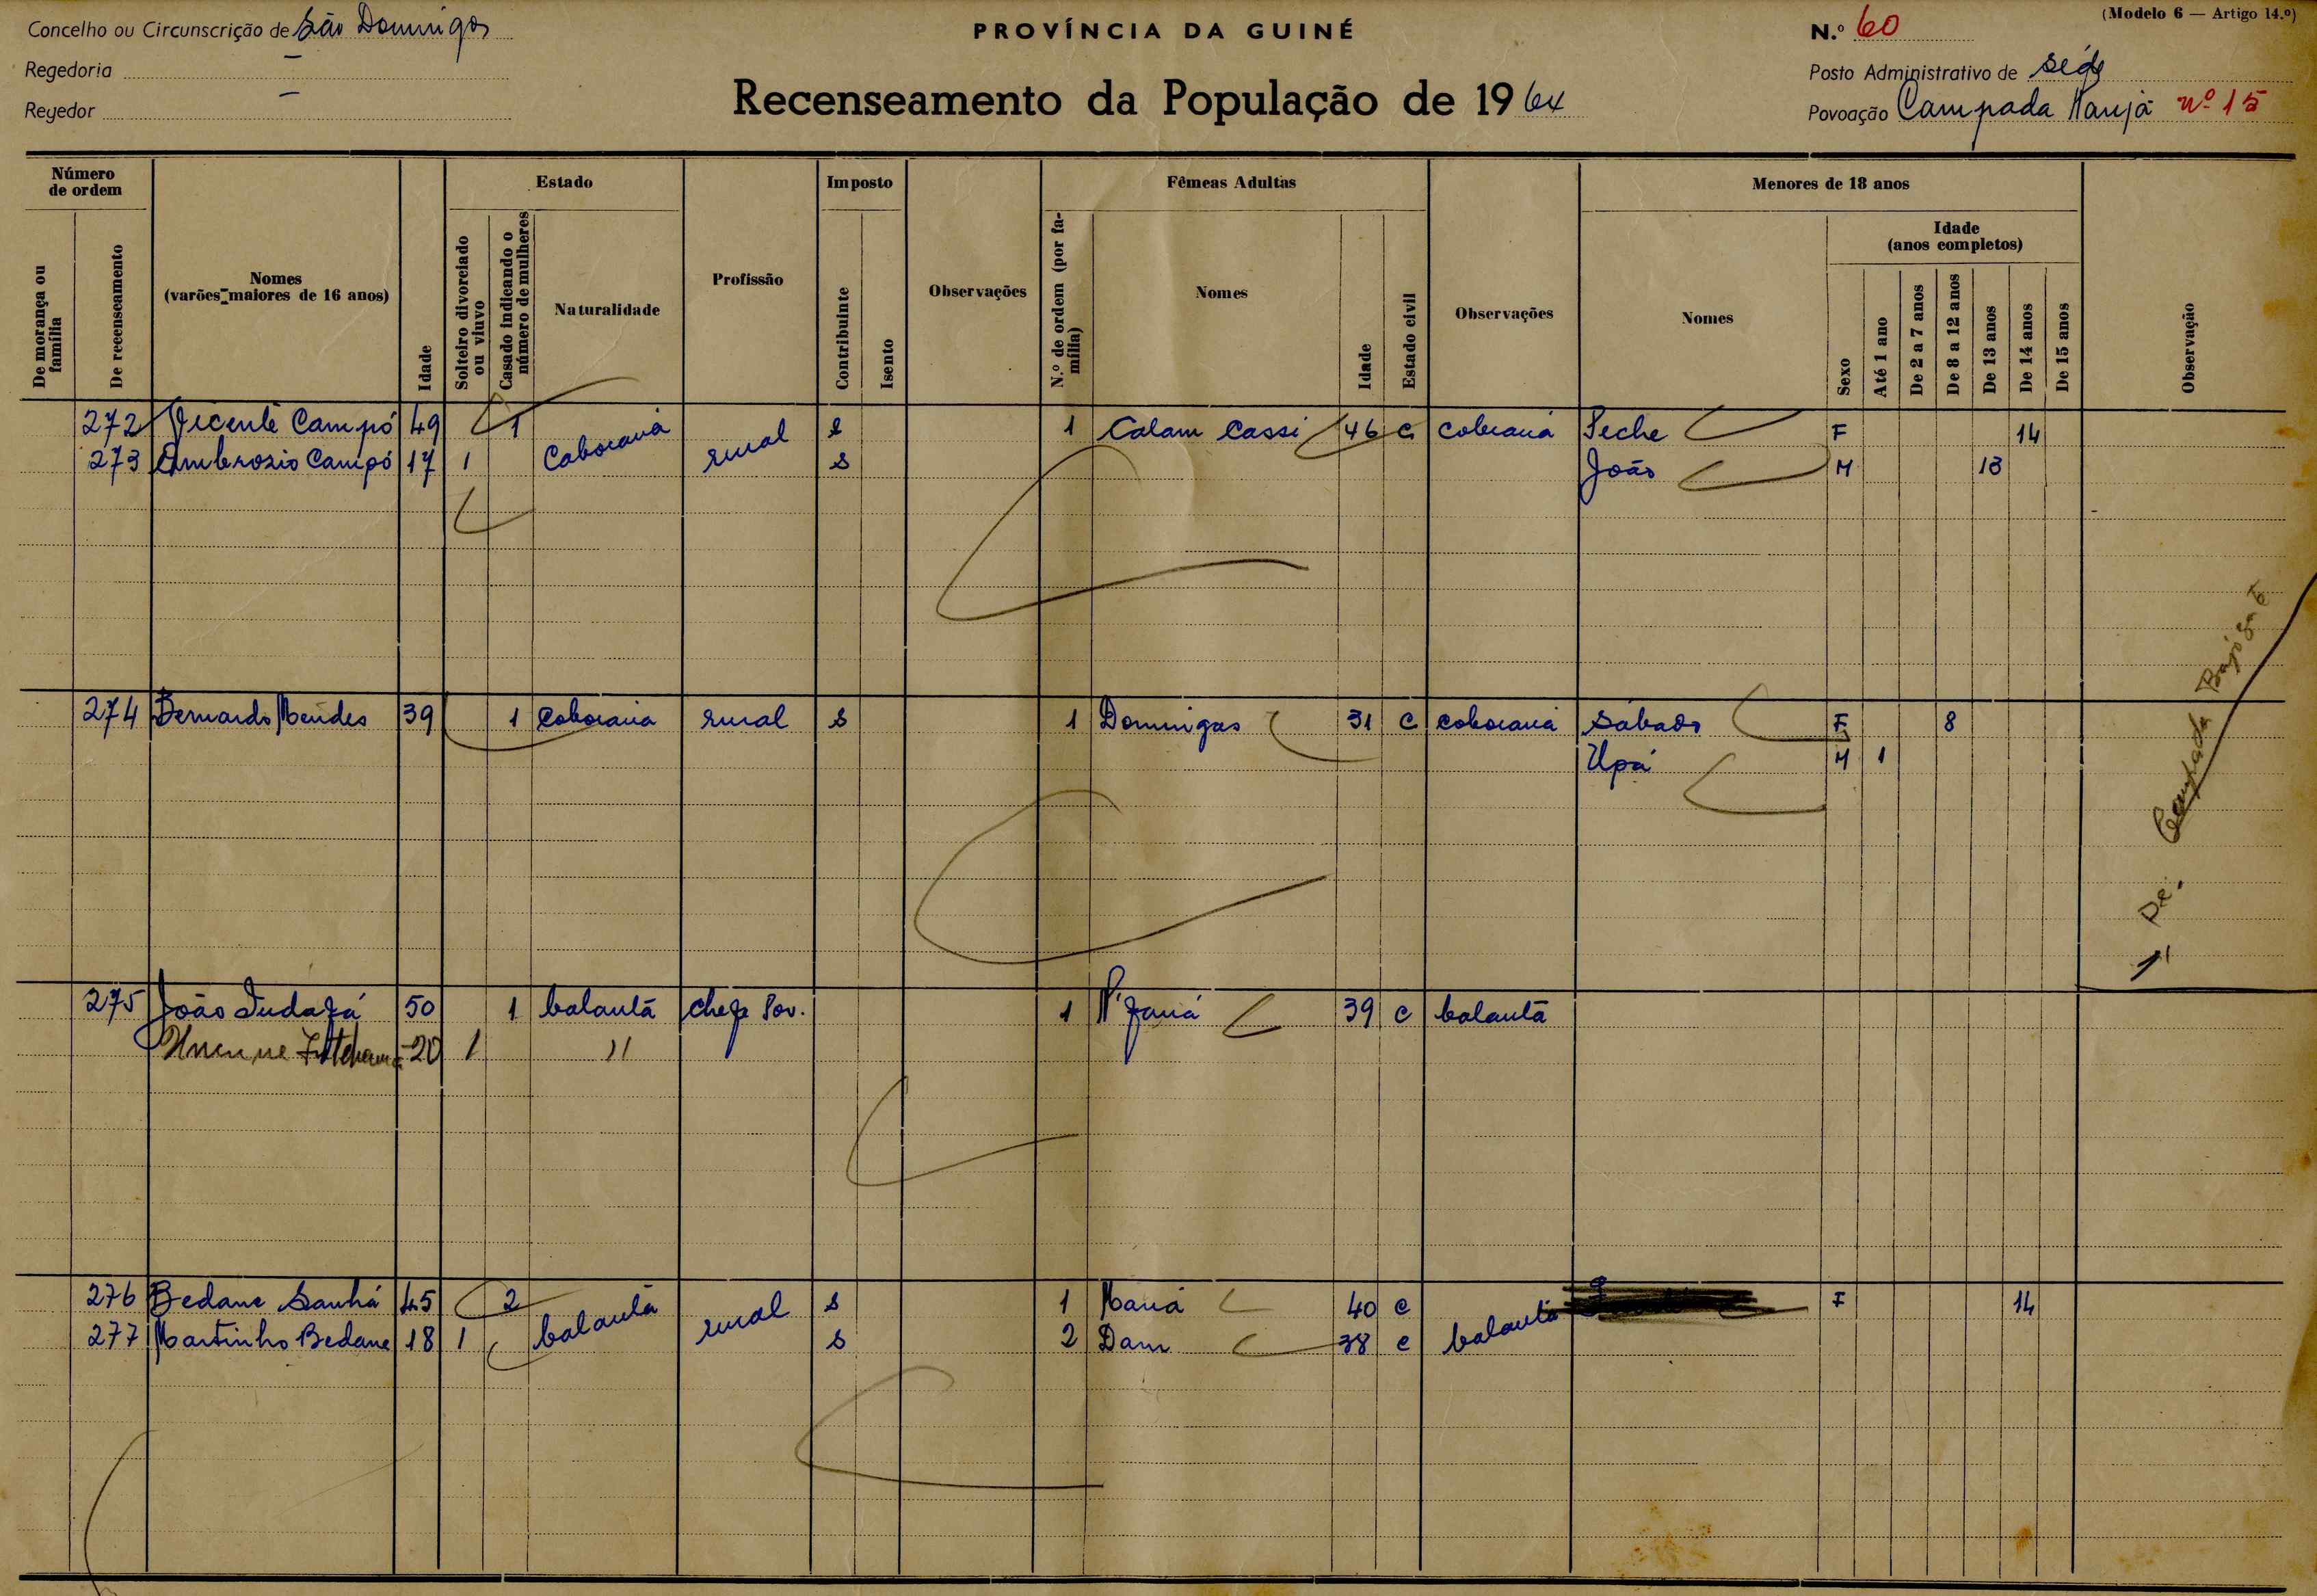 (Modelo 6 — Artigo 14.º)
Concelho ou Circunscrição de São Domingos
PROVÍNCIA DA GUINÉ
N.º 60
Regedoria —
Posto Administrativo de séde
Regedor —
Recenseamento da População de 1964
Povoação Campada Manjá nº 15
Número de ordem
De morança ou família
De recenseamento
Nomes (varões maiores de 16 anos)
Idade
Estado
Solteiro divorciado ou viuvo
Casado indicando o número de mulheres
Naturalidade
Profissão
Imposto
Contribuinte
Isento
Observações
Fêmeas Adultas
N.º de ordem (por família)
Nomes
Idade
Estado civil
Observações
Menores de 18 anos
Nomes
Sexo
Idade (anos completos)
Até 1 ano
De 2 a 7 anos
De 8 a 12 anos
De 13 anos
De 14 anos
De 15 anos
Observação
272 Vicente Campó 49 1 Coboiana rural s 1 Calam Cassi 46 c coboiana Peche F 14
273 Ambrozio Campó 17 1 s João M 13
274 Bernardo Mendes 39 1 Coboiana rural s 1 Domingas 31 c coboiana Sábado F 8
Upá M 1
De. Campada
275 João 50 1 balanta chefe Pov. 1 39 c balanta
20 1 "
276 Bedane Sanhá 45 2 balanta rural s 1 Maná 40 c balanta F 14
277 Martinho Bedane 18 1 s 2 Dam 38 c